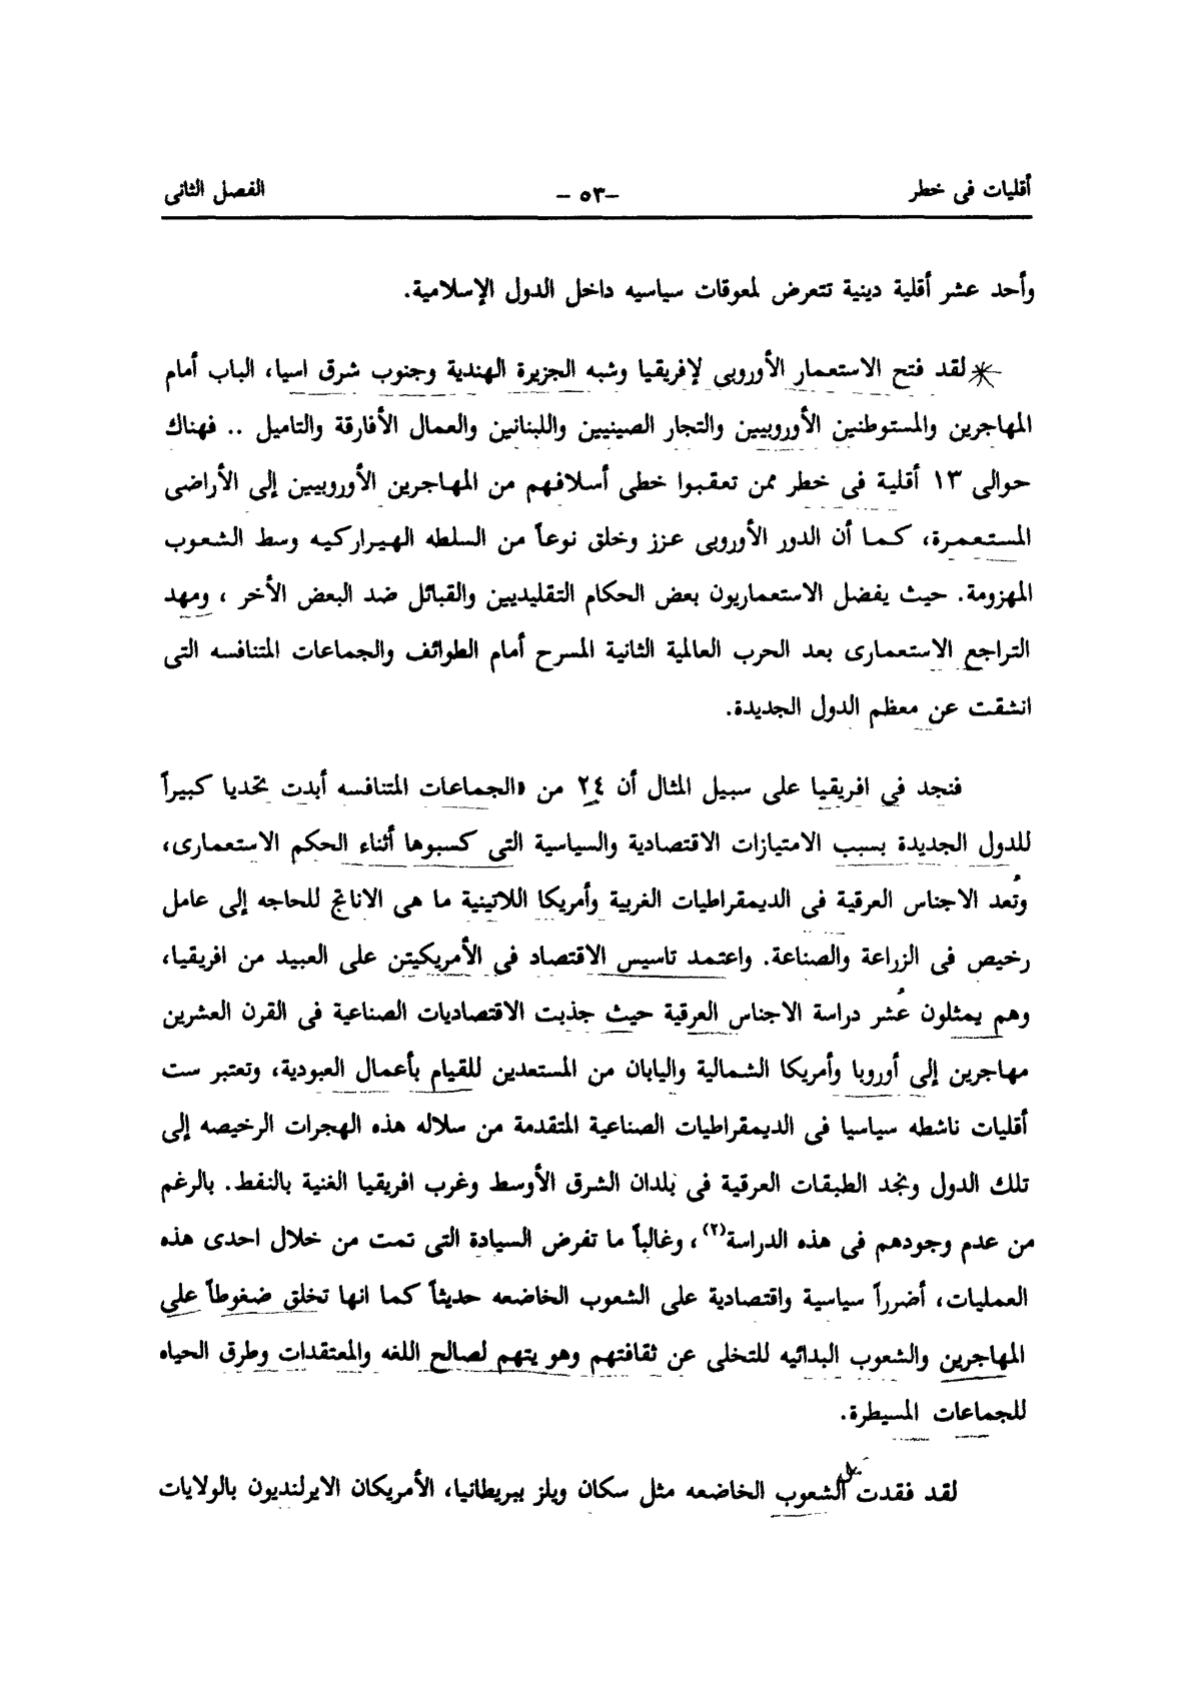 أقليات فى خطر
–٥٣ –
الفصل الثانى
وأحد عشر أقلية دينية تتعرض لمعوقات سياسيه داخل الدول الإسلامية.
لقد فتح الاستعمار الأوروبى لإفريقيا وشبه الجزيرة الهندية وجنوب شرق اسيا، الباب أمام
المهاجرين والمستوطنين الأوروبيين والتجار الصينيين واللبنانين والعمال الأفارقة والتاميل .. فهناك
حوالى ١٣ أقلية فى خطر ممن تعقبوا خطى أسلافهم من المهاجرين الأوروبيين إلى الأراضى
المستعمرة، كما أن الدور الأوروبى عزز وخلق نوعاً من السلطه الهيراركيه وسط الشعوب
المهزومة. حيث يفضل الاستعماريون بعض الحكام التقليديين والقبائل ضد البعض الأخر ، ومهد
التراجع الاستعمارى بعد الحرب العالمية الثانية المسرح أمام الطوائف والجماعات المتنافسه التى
انشقت عن معظم الدول الجديدة.
فنجد في افريقيا على سبيل المثال أن ٢٤ من «الجماعات المتنافسه أبدت تحديا كبيراً
للدول الجديدة بسبب الامتيازات الاقتصادية والسياسية التى كسبوها أثناء الحكم الاستعمارى،
وتُعد الاجناس العرقية فى الديمقراطيات الغربية وأمريكا اللاتينية ما هى الاناتج للحاجه إلى عامل
رخيص فى الزراعة والصناعة. واعتمد تاسيس الاقتصاد فى الأمريكيتن على العبيد من افريقيا،
وهم يمثلون عُشر دراسة الاجناس العرقية حيث جذبت الاقتصاديات الصناعية فى القرن العشرين
مهاجرين إلى أوروبا وأمريكا الشمالية واليابان من المستعدين للقيام بأعمال العبودية، وتعتبر ست
أقليات ناشطه سياسيا فى الديمقراطيات الصناعية المتقدمة من سلاله هذه الهجرات الرخيصه إلى
تلك الدول ونجد الطبقات العرقية فى بلدان الشرق الأوسط وغرب افريقيا الغنية بالنفط. بالرغم
من عدم وجودهم فى هذه الدراسة(٢)، وغالباً ما تفرض السيادة التى تمت من خلال احدى هذه
العمليات، أضرراً سياسية واقتصادية على الشعوب الخاضعه حديثاً كما انها تخلق ضغوطاً على
المهاجرين والشعوب البدائيه للتخلى عن ثقافتهم وهو يتهم لصالح اللغه والمعتقدات وطرق الحياه
للجماعات المسيطرة.
لقد فقدت الشعوب الخاضعه مثل سكان ويلز ببريطانيا، الأمريكان الايرلنديون بالولايات